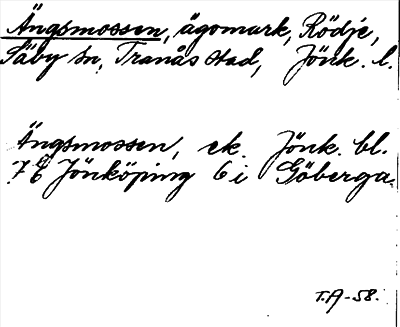 Ängsmossen, ägomark, Rödje,
Säby sn, Tranås stad, Jönk. l.
Ängsmossen, ek. Jönk. bl.
7E Jönköping 6i Göberga.
T.A-58.